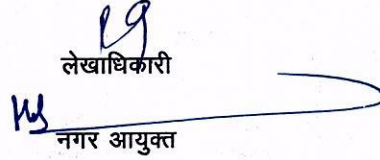 लेखाधिकारी
नगर आयुक्त